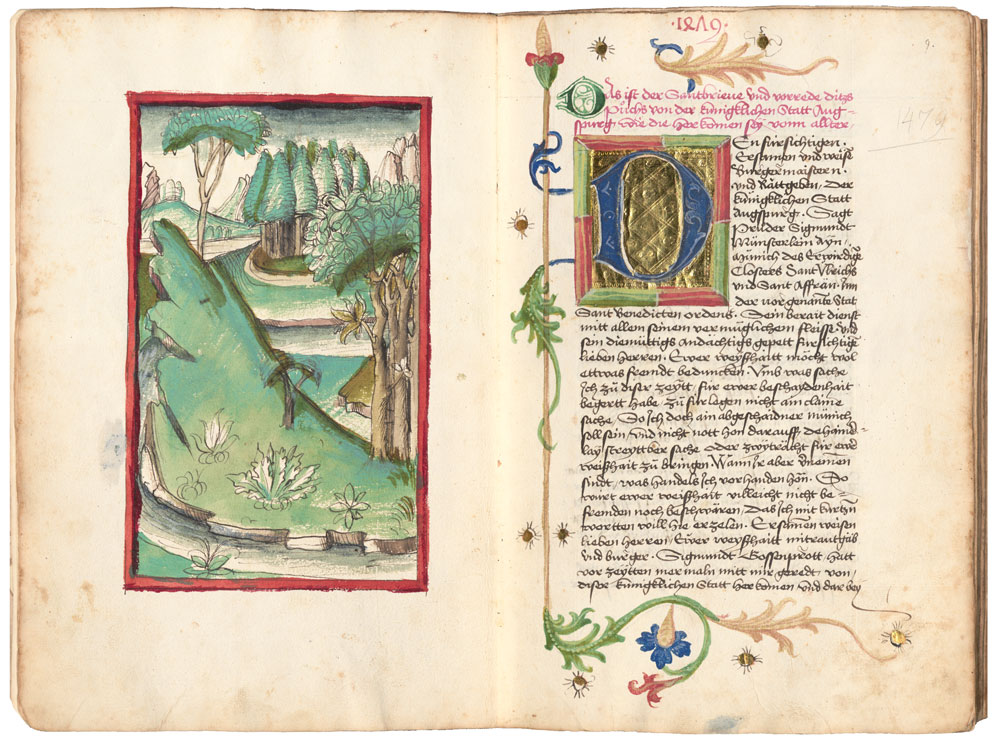 ·1·8·Λ·9·
9.
1479
Das ist der Santbrieue Vnd vorrede ditzs
Půchs von der künigklichen Statt Aug=
spurg Wie die Herkomen sey vonn allter.
DEn fürsichtigen.
Ersamen vnd weise
Burgermaistern.
vnd Rättgeben, Der
künigklichen Statt
Augspurg. Sagt
Průder Sigmundt
Münsterlein Ayn,
Münich des Erwirdige
Closters Sant Vlrichs
vnd Sant Affran. Inn
der vorgenante Stat
Sant Benedicten ordens. Sein berait dienst
mitt allem seinem vermüglichem fleisse, vnd
sein diemüttigs andächtigs gepett fürsichtige
lieben Herren. Ewer weyßhaitt möcht wol
ettwas frembt beduncken. Vmb was sache
Ich zů diser zeytt, für ewer beschaydenhait
begertt habe, zů fürlegen nicht ain claine
sache. So Ich doch ain abgeschaidner münich
soll sein, Vnd nicht nott hon darauff,
lay streyttber sache oder zwyträcht für ewer
weißhait zů bringen Wann Ir aber vernemen
sindt, was handels Ich vorhanden hon. So
wirt ewer weißhait villeicht nicht be=
fremden noch beschwären, Das Ich mit kurtzn
wortten will hie erzelen. Ersamen weisen
lieben Herren, Ewer weyßhaitt mitrautgäb
vnd burger. Sigmundt Gossenprott hatt
vor zeytten mermaln mitt mir geredt, von,
diser künigklichen Statt Herkomen vnd dar bey